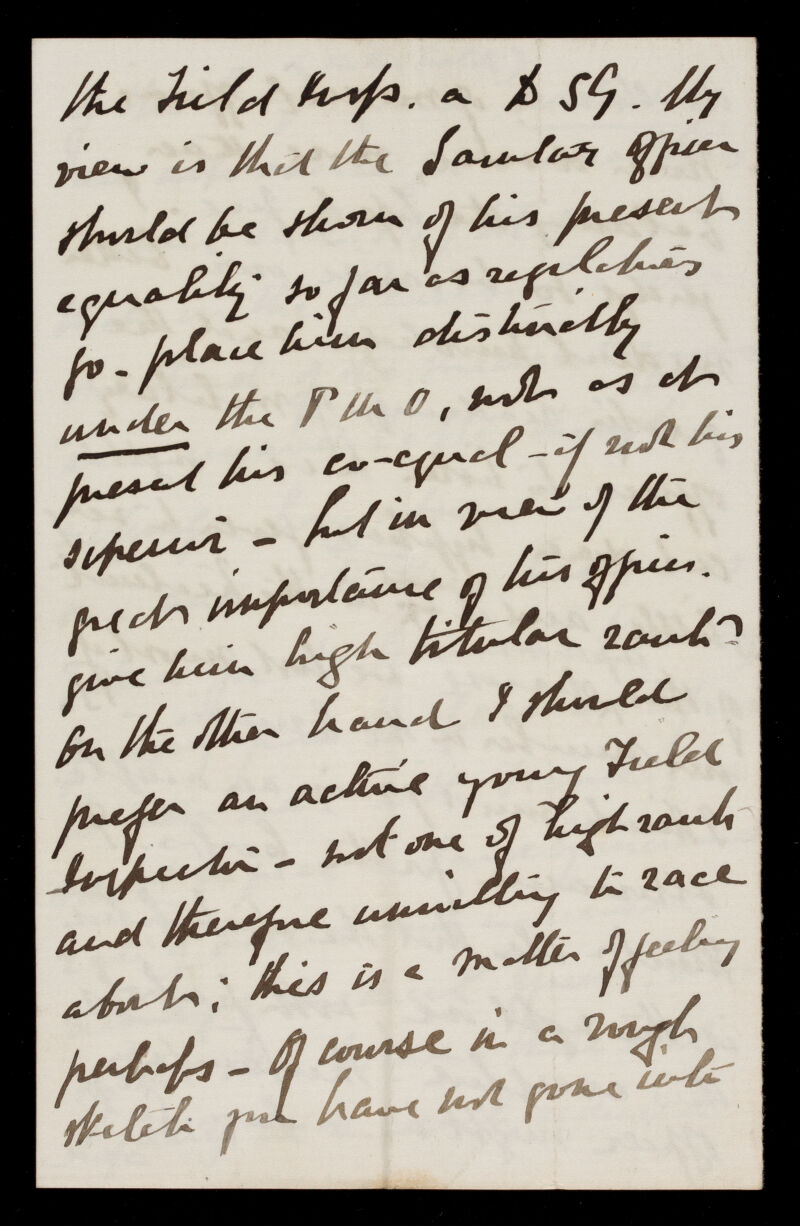 the Field Insp. a DSG. My
view is that the Sanitary Officer
should be shorn of his present
equality so far as regulations
go - place him distinctly
under the PMO, not as at
present his co-equal - if not his
superior - but in view of the
great importance of his office.
give him high titular rank?
On the other hand I should
prefer an active young Field
Inspector - not one of high rank
and therefore unwilling to race
about; this is a matter of feeling
perhaps - Of course in a rough
sketch you have not gone into